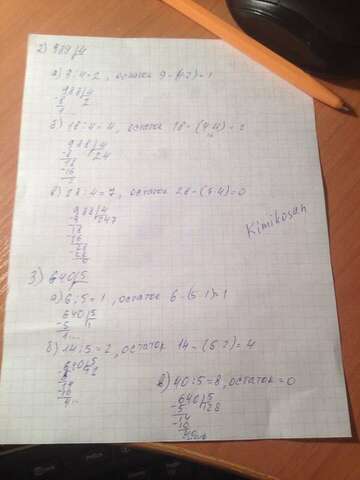 2) 989|4
а) 9:4=2, остаток 9-(4·2)=1
988|4
-8 2
1
б) 18:4=4, остаток 18-(4·4)=2
988|4
-8 24
18
-16
2
в) 28:4=7, остаток 28-(7·4)=0
988|4
-8 247
18
16
28
-28
0
Kimikosan
3) 640|5
а) 6:5=1, остаток 6-(5·1)=1
640|5
-5 1
1
б) 14:5=2, остаток 14-(5·2)=4
-10
4
в) 40:5=8, остаток=0
640|5
-5 128
-14
10